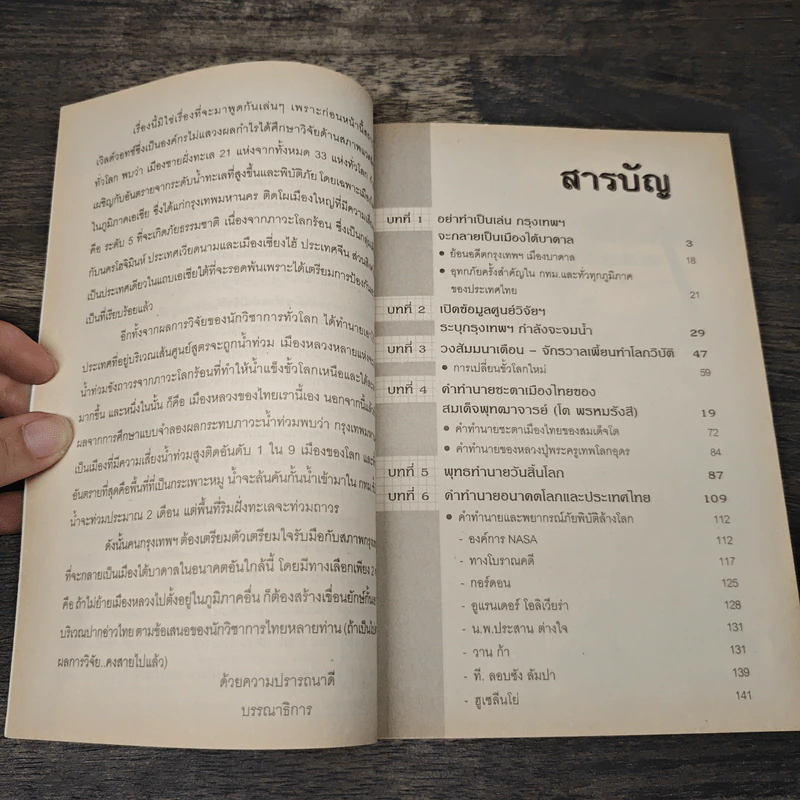 เรื่องนี้มิใช่เรื่องที่จะมาพูดกันเล่นๆ เพราะก่อนหน้านี้
เวิลด์วอทช์ซึ่งเป็นองค์กรไม่แสวงผลกำไรได้ศึกษาวิจัยด้านสภาพ
ทั่วโลก พบว่า เมืองชายฝั่งทะเล 21 แห่งจากทั้งหมด 33 แห่งทั่วโลก
เผชิญกับอันตรายจากระดับน้ำทะเลที่สูงขึ้นและพิบัติภัย โดยเฉพาะ
ในภูมิภาคเอเชีย ซึ่งได้แก่กรุงเทพมหานคร ติดโผเมืองใหญ่ที่มีความ
คือ ระดับ 5 ที่จะเกิดภัยธรรมชาติ เนื่องจากภาวะโลกร้อน ซึ่งเป็น
กับนครโฮจิมินห์ ประเทศเวียดนามและเมืองเซี่ยงไฮ้ ประเทศจีน
เป็นประเทศเดียวในแถบเอเชียใต้ที่จะรอดพ้นเพราะได้เตรียมการป้องกัน
เป็นที่เรียบร้อยแล้ว
อีกทั้งจากผลการวิจัยของนักวิชาการทั่วโลก ได้ทำนาย
ประเทศที่อยู่บริเวณเส้นศูนย์สูตรจะถูกน้ำท่วม เมืองหลวงหลายแห่ง
น้ำท่วมขังถาวรจากภาวะโลกร้อนที่ทำให้น้ำแข็งขั้วโลกเหนือและใต้
มากขึ้น และหนึ่งในนั้น ก็คือ เมืองหลวงของไทยเรานี้เอง นอกจากนี้แล้ว
ผลจากการศึกษาแบบจำลองผลกระทบภาวะน้ำท่วมพบว่า กรุงเทพมหานคร
เป็นเมืองที่มีความเสี่ยงน้ำท่วมสูงติดอันดับ 1 ใน 9 เมืองของโลก
อันตรายที่สุดคือพื้นที่ที่เป็นกระเพาะหมู น้ำจะล้นคันกั้นน้ำเข้ามาใน กทม.
น้ำจะท่วมประมาณ 2 เดือน แต่พื้นที่ริมฝั่งทะเลจะท่วมถาวร
ดังนั้นคนกรุงเทพฯ ต้องเตรียมตัวเตรียมใจรับมือกับสภาพ
ที่จะกลายเป็นเมืองใต้บาดาลในอนาคตอันใกล้นี้ โดยมีทางเลือกเพียง 2
คือ ถ้าไม่ย้ายเมืองหลวงไปตั้งอยู่ในภูมิภาคอื่น ก็ต้องสร้างเขื่อนยักษ์กั้น
บริเวณปากอ่าวไทย ตามข้อเสนอของนักวิชาการไทยหลายท่าน (ถ้าเป็น
ผลการวิจัย..คงสายไปแล้ว)
ด้วยความปรารถนาดี
บรรณาธิการ
สารบัญ
บทที่ 1 อย่าทำเป็นเล่น กรุงเทพฯ
จะกลายเป็นเมืองใต้บาดาล 3
● ย้อนอดีตกรุงเทพฯ เมืองบาดาล 18
● อุทกภัยครั้งสำคัญใน กทม.และทั่วทุกภูมิภาค
ของประเทศไทย 21
บทที่ 2 เปิดข้อมูลศูนย์วิจัยฯ
ระบุกรุงเทพฯ กำลังจะจมน้ำ 29
บทที่ 3 วงสัมมนาเตือน - จักรวาลเพี้ยนทำโลกวิบัติ 47
● การเปลี่ยนขั้วโลกใหม่ 59
บทที่ 4 คำทำนายชะตาเมืองไทยของ
สมเด็จพุฒาจารย์ (โต พรหมรังสี) 19
● คำทำนายชะตาเมืองไทยของสมเด็จโต 72
● คำทำนายของหลวงปู่พระครูเทพโลกอุดร 84
บทที่ 5 พุทธทำนายวันสิ้นโลก 87
บทที่ 6 คำทำนายอนาคตโลกและประเทศไทย 109
● คำทำนายและพยากรณ์ภัยพิบัติล้างโลก 112
- องค์การ NASA 112
- ทางโบราณคดี 117
- กอร์ดอน 125
- จูแรนเดอร์ โอลิเวียร่า 128
- น.พ.ประสาน ต่างใจ 131
- วาน ก้า 131
- ที. ลอบซัง ลัมปา 139
- ฮูเซลีนโย่ 141